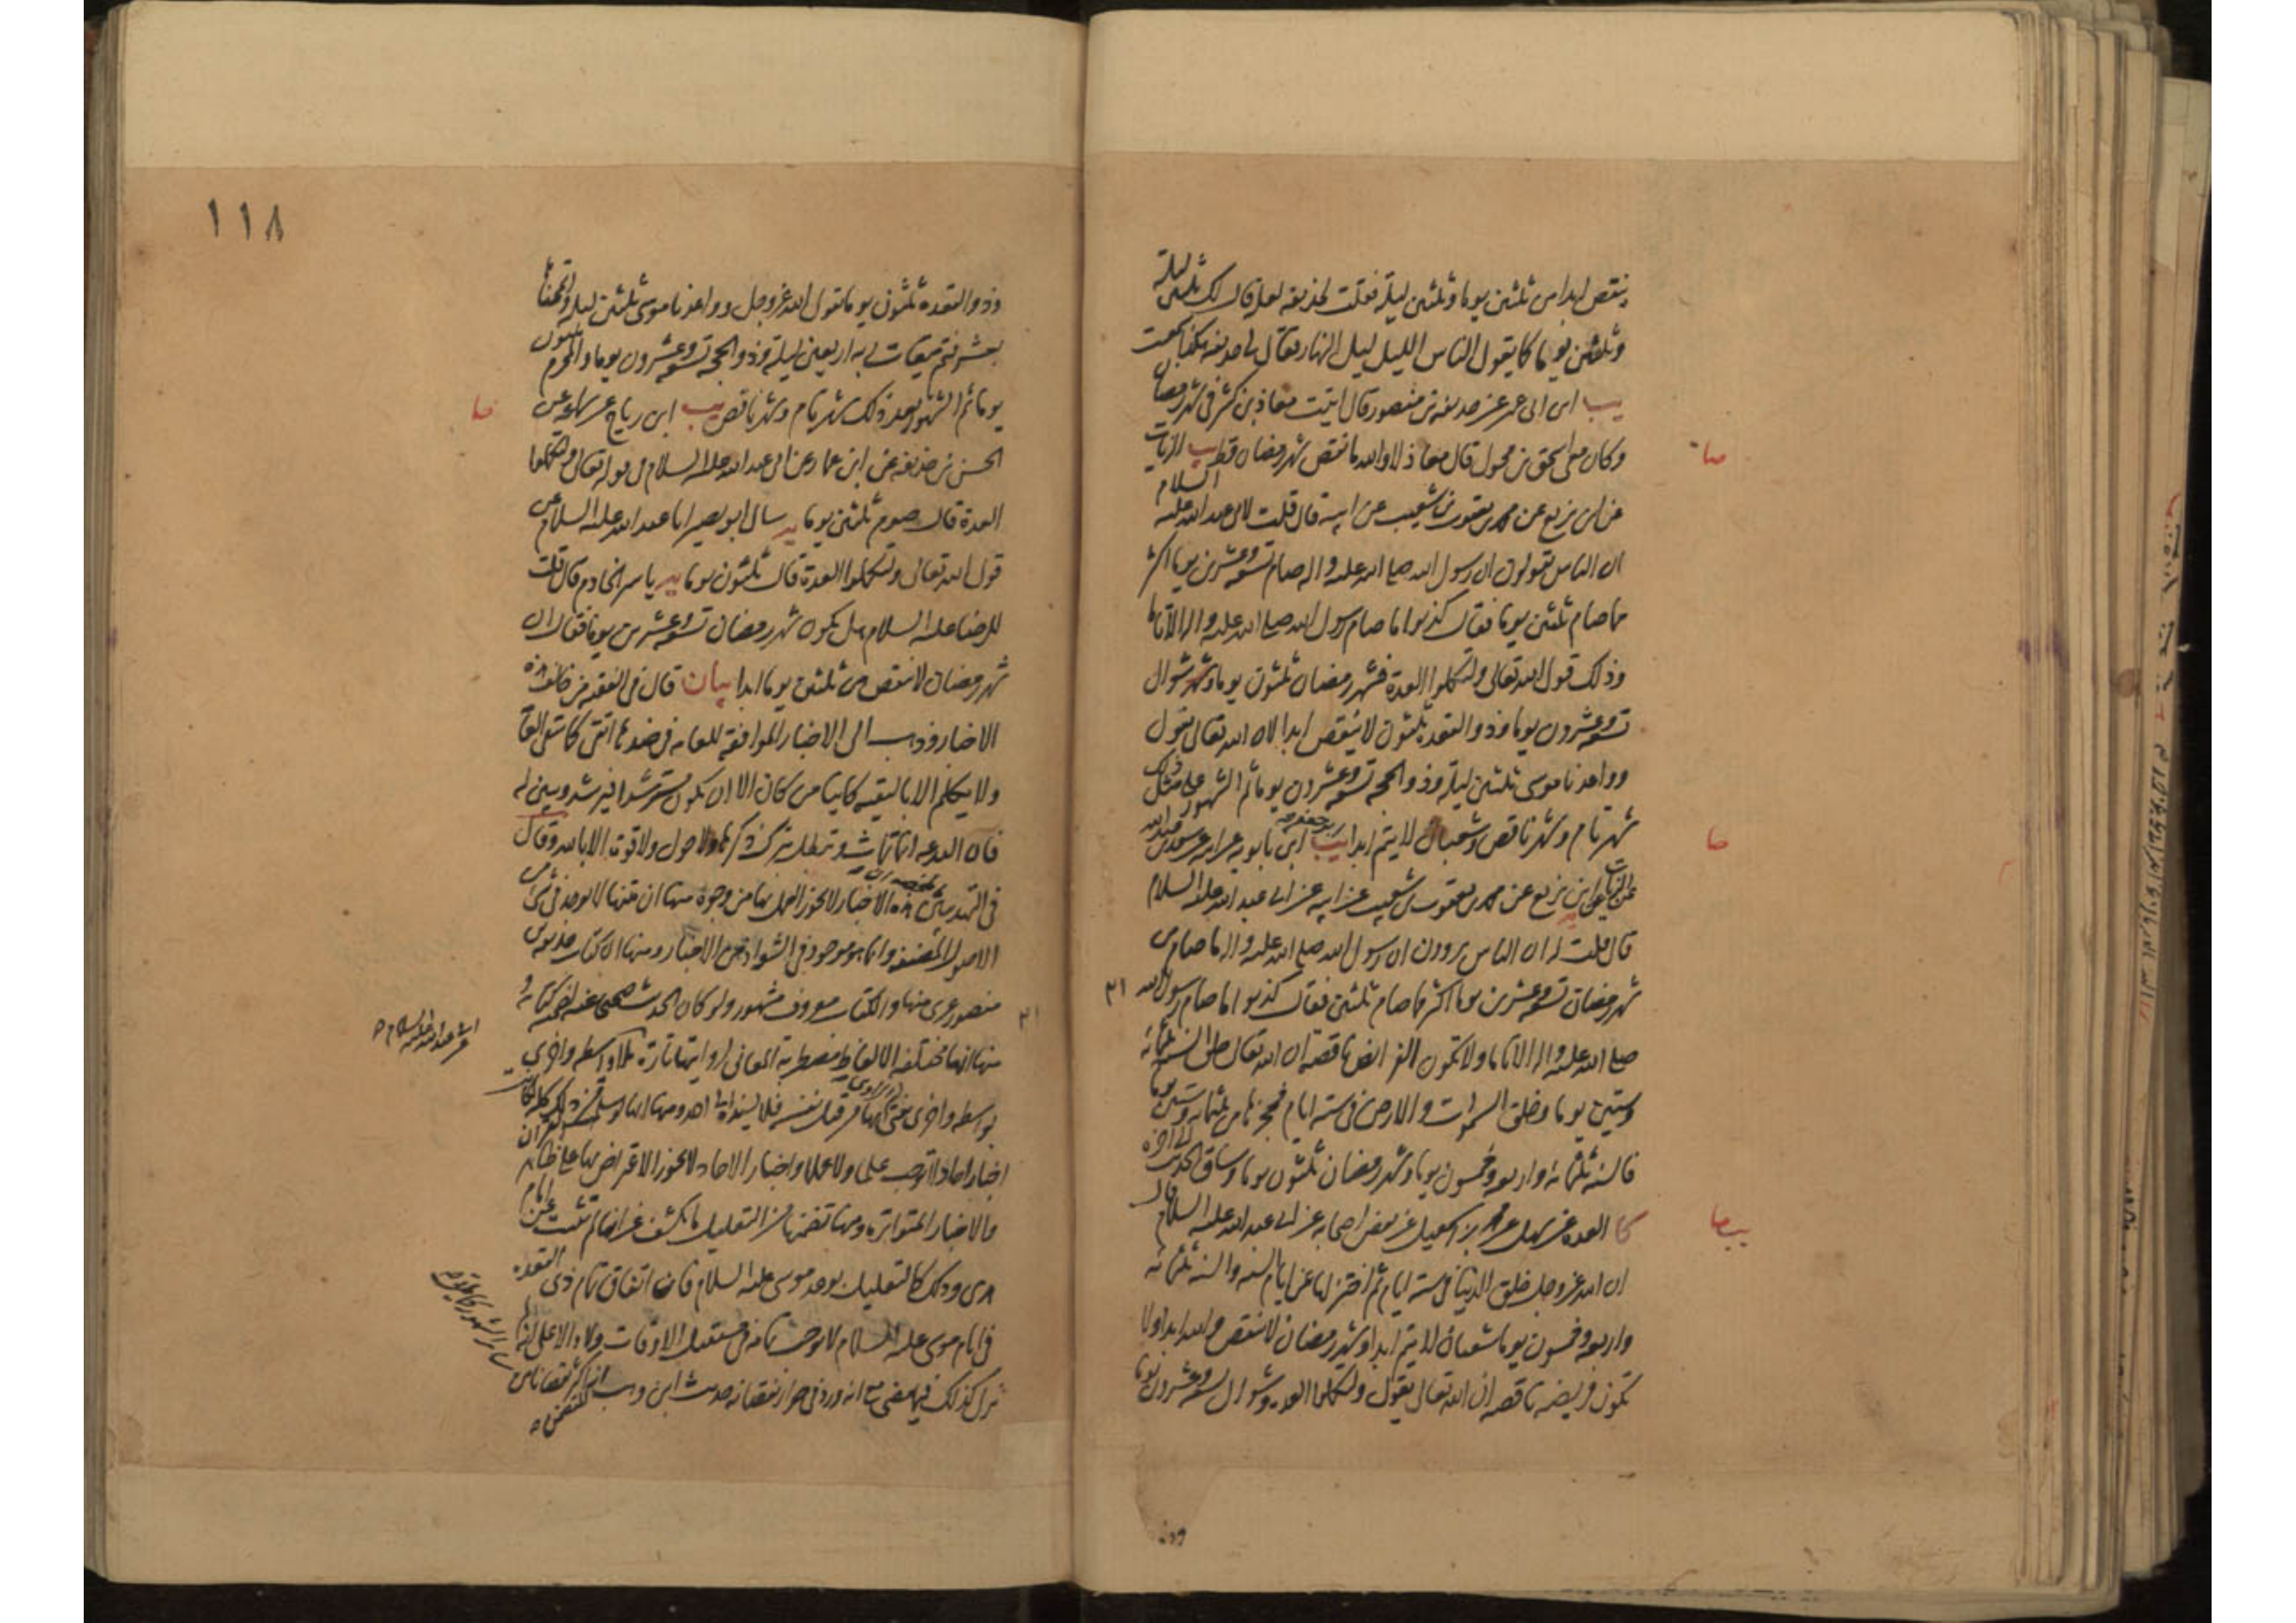 ينقص ابدا من ثلثين يوما وثلثين ليلة فقلت لحذيفة لعله قال لك ثلثين ليلة
وثلثين يوما كما يقول الناس الليل ليل النهار فقال لي حذيفة هكذا سمعت
يب ابن ابي عمير عن حذيفة بن منصور قال اتيت معاذ بن كثير في شهر رمضان
وكان معي اسحق بن محول قال معاذ لا والله ما نقص شهر رمضان قط يب الزيات
عن ابن بزيع عن محمد بن يعقوب بن شعيب عن ابيه قال قلت لابي عبد الله عليه السلام
ان الناس يقولون ان رسول الله صلى الله عليه واله صام تسعة وعشرين يوما اكثر
مما صام ثلثين يوما فقال كذبوا ما صام رسول الله صلى الله عليه واله الا تاما
وذلك قول الله تعالى ولتكملوا العدة فشهر رمضان ثلثون يوما وشهر شوال
تسعة وعشرون يوما وذو القعدة ثلثون لا ينقص ابدا لان الله تعالى يقول
وواعدنا موسى ثلثين ليلة وذو الحجة تسعة وعشرون يوما ثم الشهور على مثل ذلك
شهر تام وشهر ناقص وشعبان لا يتم ابدا يب ابن بابويه عن ابيه عن سعد بن عبد الله
عن الزيات عن ابن بزيع عن محمد بن يعقوب بن شعيب عن ابيه عن ابي عبد الله عليه السلام
قال قلت له ان الناس يروون ان رسول الله صلى الله عليه واله ما صام من
شهر رمضان تسعة وعشرين يوما اكثر مما صام ثلثين فقال كذبوا ما صام رسول الله
صلى الله عليه واله الا تاما ولا تكون الفرائض ناقصة ان الله تعالى خلق السنة ثلثمائة
وستين يوما وخلق السموات والارض في ستة ايام فحجزها من ثلثمائة وستين يوما
فالسنة ثلثمائة واربعة وخمسون يوما وشهر رمضان ثلثون يوما وساق الحديث الى اخره
كا العدة عن سهل عن محمد بن اسمعيل عن بعض اصحابه عن ابي عبد الله عليه السلام قال
ان الله عز وجل خلق الدنيا في ستة ايام ثم اختزلها عن ايام السنة والسنة ثلثمائة
واربعة وخمسون يوما شعبان لا يتم ابدا وشهر رمضان لا ينقص والله ابدا ولا
تكون فريضة ناقصة ان الله تعالى يقول ولتكملوا العدة وشوال تسعة وعشرون يوما
وذو
١١٨
وذو القعدة ثلثون يوما لقول الله عز وجل وواعدنا موسى ثلثين ليلة واتممناها
بعشر فتم ميقات ربه اربعين ليلة وذو الحجة تسعة وعشرون يوما والمحرم ثلثون
يوما ثم الشهور بعد ذلك شهر تام وشهر ناقص يب ابن رياح عن سماعة عن
الحسن بن حذيفة عن ابن عمار عن ابي عبد الله عليه السلام في قوله تعالى ولتكملوا
العدة قال صوم ثلثين يوما يه سال ابو بصير ابا عبد الله عليه السلام عن
قول الله تعالى ولتكملوا العدة قال ثلثون يوما يه ياسر الخادم قال قلت
للرضا عليه السلام هل يكون شهر رمضان تسعة وعشرين يوما فقال ان
شهر رمضان لا ينقص من ثلثين يوما ابدا بيان قال في الفقيه من خالف هذه
الاخبار وذهب الى الاخبار الموافقة للعامة في ضدها اتقي كما يتقى العامة
ولا يكلم الا بالتقية كائنا من كان الا ان يكون مسترشدا فيرشد ويبين له
فان البدعة انما تماث وتبطل بترك ذكرها ولا حول ولا قوة الا بالله وقال
في التهذيبين هذه الاخبار لا يجوز العمل بها من وجوه منها ان متنها لا يوجد في شيء من
الاصول المصنفة وانما هو موجود في الشواذ من الاخبار ومنها ان كتاب حذيفة بن
منصور عري منها والكتاب معروف مشهور ولو كان الحديث صحيحا عنه لضمنه كتابه و
منها انها مختلفة الالفاظ مضطربة المعاني لروايتها تارة بلا واسطة واخرى
اخبار احاد لا توجب علما ولا عملا واخبار الاحاد لا يجوز الاعتراض بها على ظاهر القران
والاخبار المتواترة ومنها تضمنها من التعليل ما يكشف عن انها لم تثبت عن امام
هدى وذلك كالتعليل بوعد موسى عليه السلام فان اتفاق تمام ذي القعدة
في ايام موسى عليه السلام لا يوجب تمامه في مستقبل الاوقات ولا دالا على انه
نزل كذلك فيما مضى مع انه ورد في جواز نقصانه حديث ابن وهب المتضمن
انه اكثر نقصانا من سائر الشهور